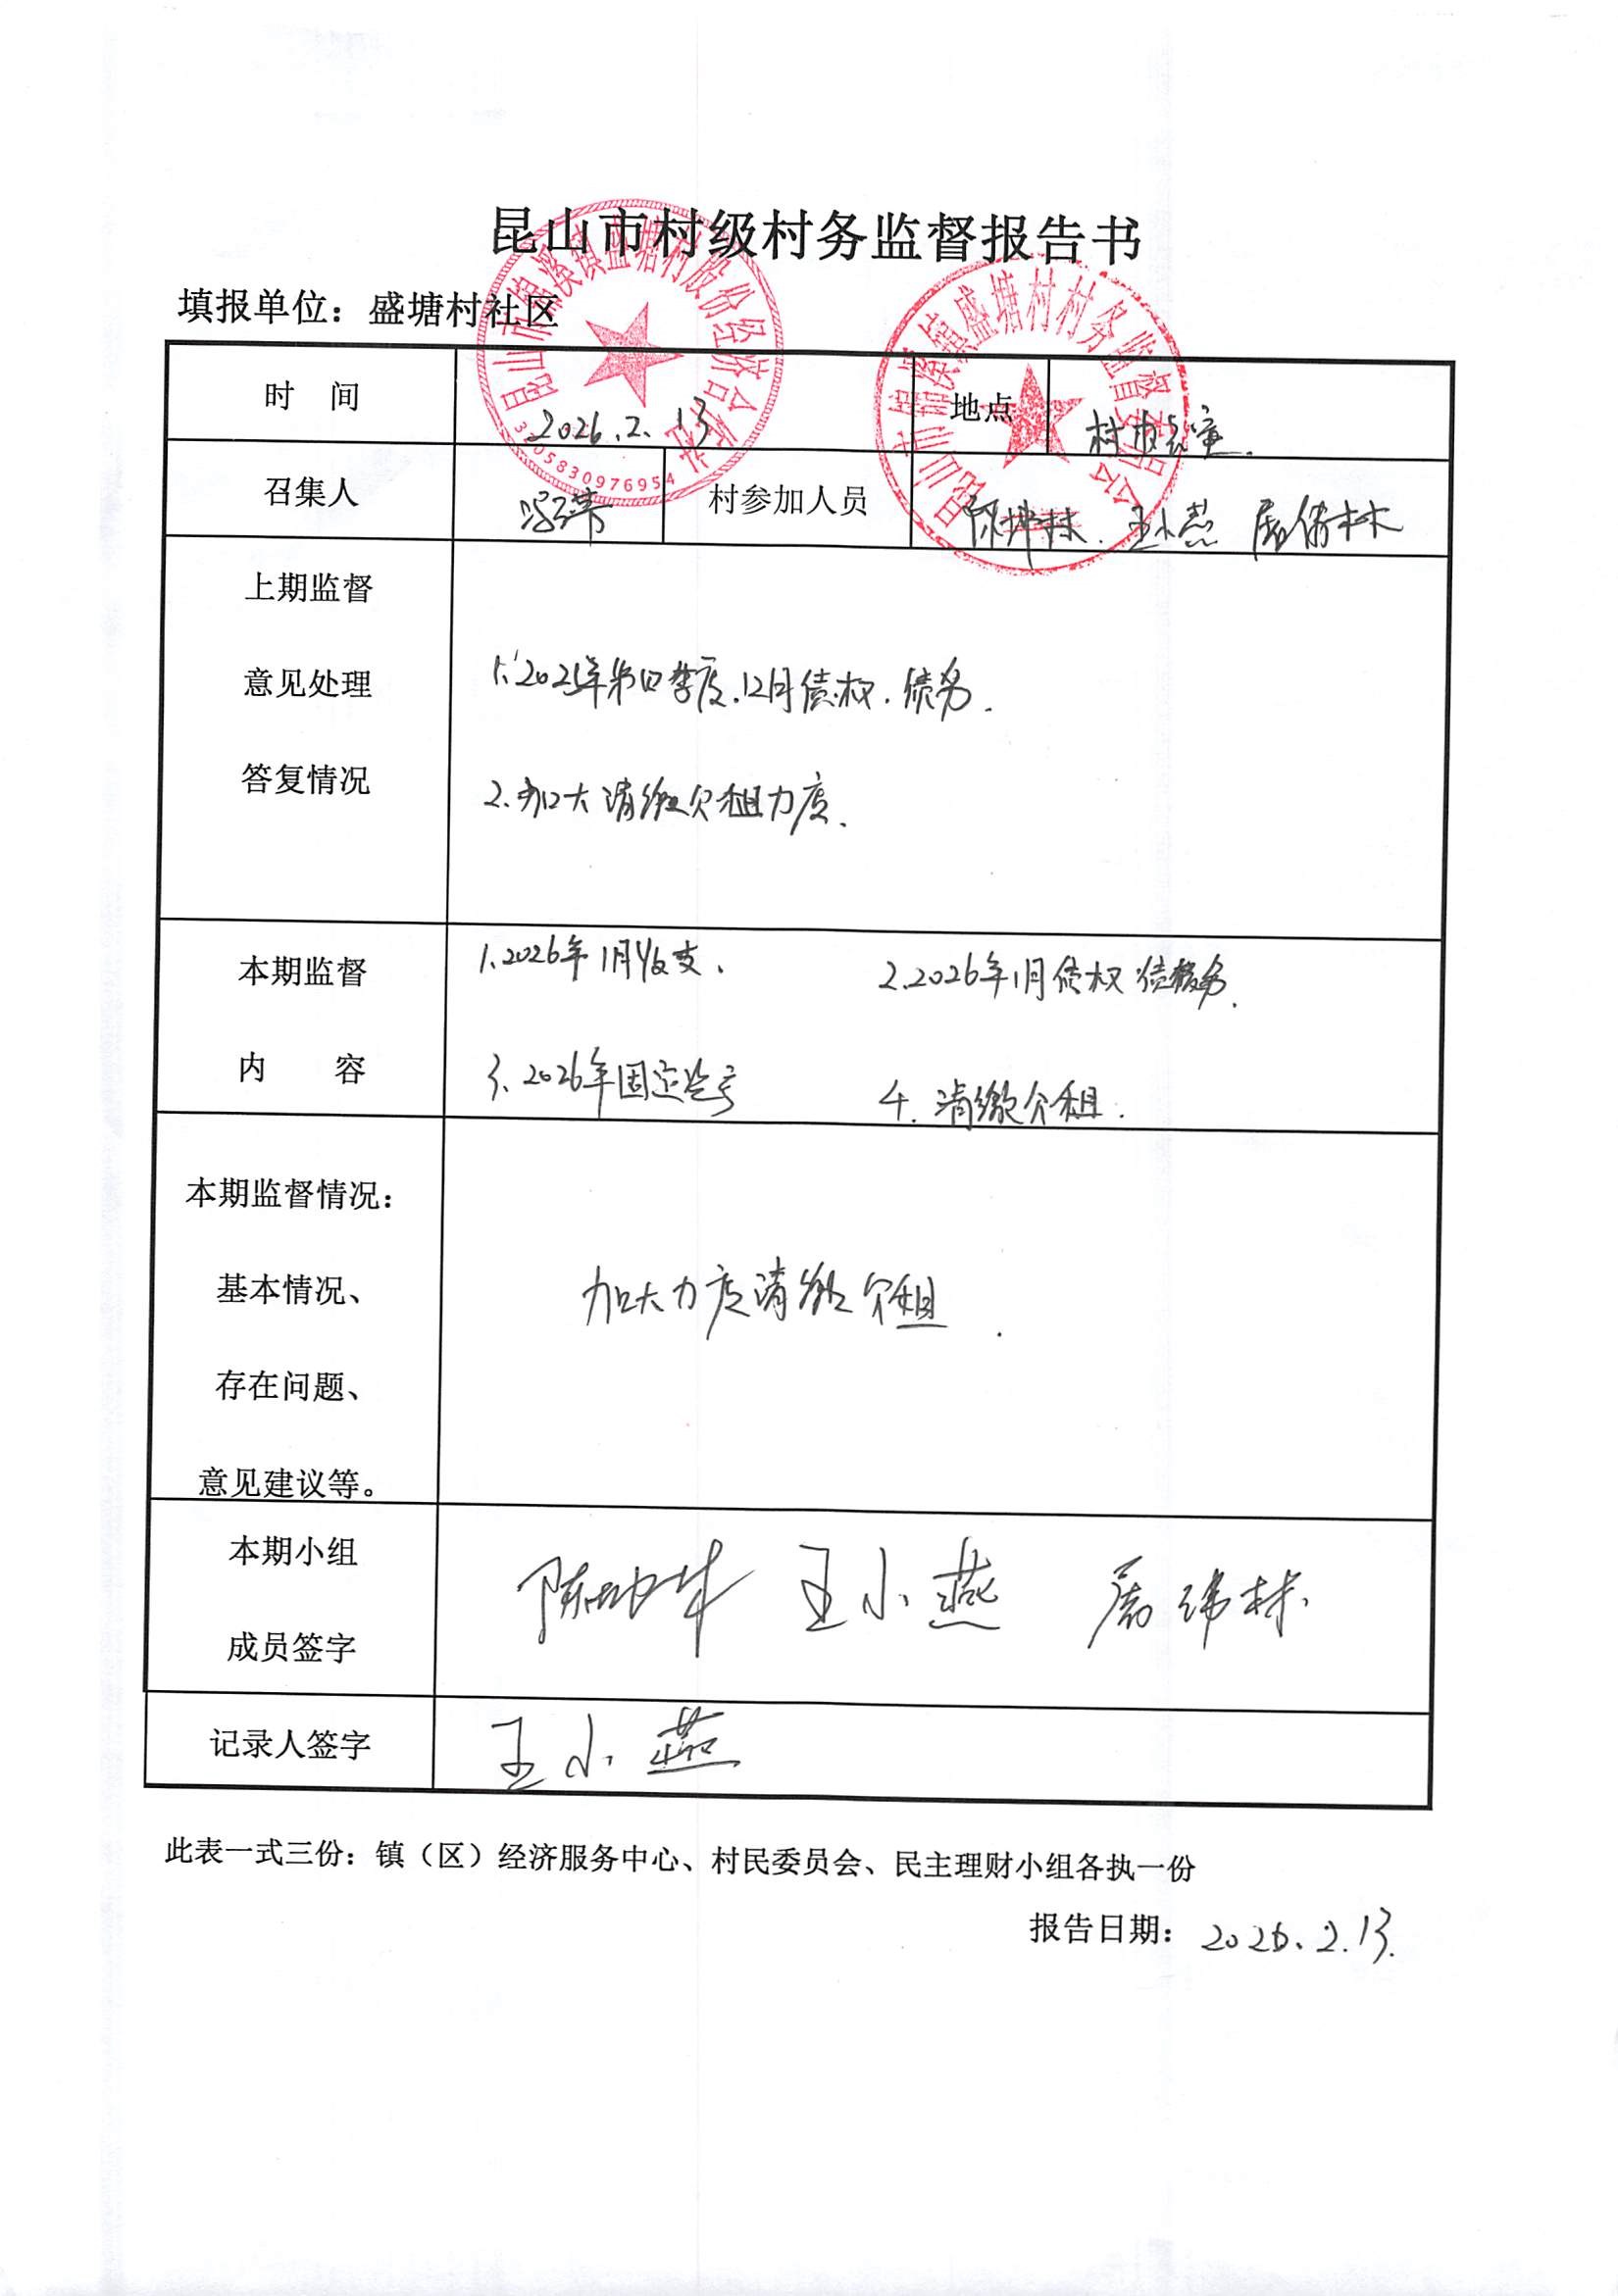 昆山市村级村务监督报告书
填报单位：盛塘村社区
时 间 2026.2.13 地点 村
召集人 村参加人员 王小燕
上期监督
意见处理
答复情况
1.2025年第四季度.12月债权.债务.
2.加大清缴欠租力度.
本期监督
内 容
1.2026年1月收支. 2.2026年1月债权债务.
3.2026年固定 4.清缴欠租.
本期监督情况：
基本情况、
存在问题、
意见建议等。
加大力度清缴欠租.
本期小组
成员签字
陈坤林 王小燕
记录人签字 王小燕
此表一式三份：镇（区）经济服务中心、村民委员会、民主理财小组各执一份
报告日期：2026.2.13.
昆山市锦溪镇盛塘村股份经济合作社
3205830976954
昆山市锦溪镇盛塘村村务监督委员会